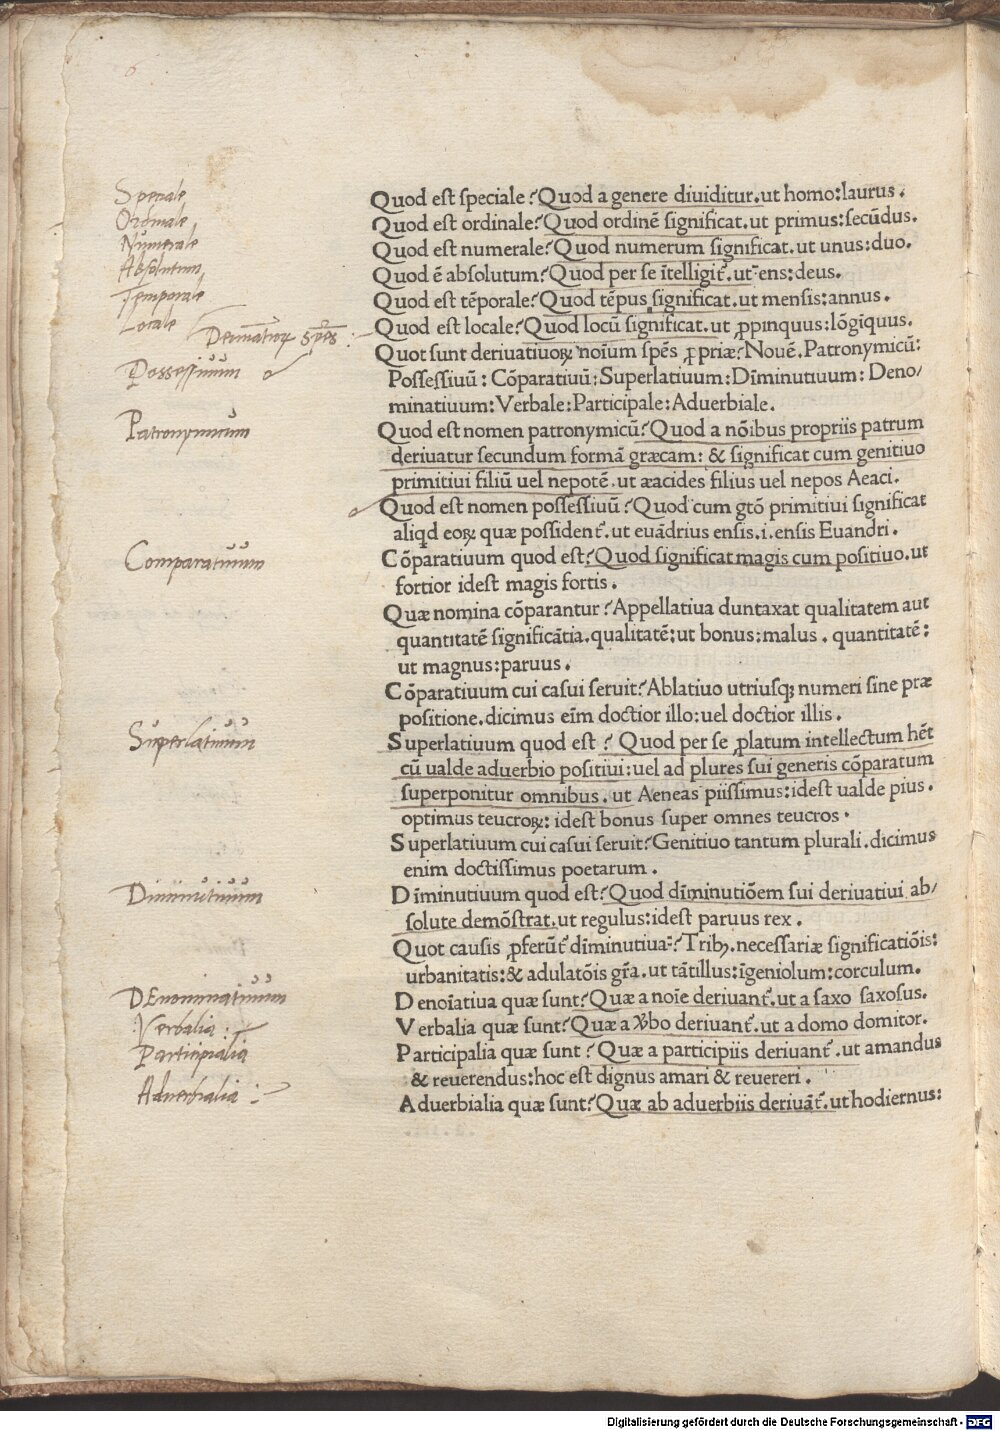 Speciale
Ordinale
Numerale
Absolutum
Temporale
Locale
Deriuatiuoꝝ Spēs :
Possessiuum
Patronymicum
Comparatiuum
Superlatiuum
Diminutiuum
DEnominatiuum
Verbalia :
Participialia
Aduerbialia :
Quod est speciale? Quod a genere diuiditur. ut homo: laurus.
Quod est ordinale? Quod ordinē significat. ut primus: secūdus.
Quod est numerale? Quod numerum significat. ut unus: duo.
Quod ē absolutum? Quod per se ītelligit̄. ut ens: deus.
Quod est tēporale? Quod tēpus significat. ut mensis: annus.
Quod est locale? Quod locū significat. ut ꝓpinquus: lōgīquus.
Quot sunt deriuatiuoꝝ noīum spēs ꝓpriæ? Nouē. Patronymicū:
Possessiuū: Cōparatiuū: Superlatiuum: Dīminutiuum: Deno/
minatiuum: Verbale: Participale: Aduerbiale.
Quod est nomen patronymicū? Quod a nōibus propriis patrum
deriuatur secundum formā græcam: & significat cum genitiuo
primitiui filiū uel nepotē. ut æacides filius uel nepos Aeaci.
Quod est nomen possessiuū? Quod cum gtō primitiui significat
aliqd eoꝝ quæ possident̄. ut euādrius ensis. i. ensis Euandri.
Cōparatiuum quod est? Quod significat magis cum positiuo. ut
fortior idest magis fortis.
Quæ nomina cōparantur? Appellatiua duntaxat qualitatem aut
quantitatē significātia. qualitatē: ut bonus: malus. quantitatē:
ut magnus: paruus.
Cōparatiuum cui casui seruit? Ablatiuo utriusqꝫ numeri sine præ
positione. dicimus eīm doctior illo: uel doctior illis.
Superlatiuum quod est? Quod per se ꝓlatum intellectum hēt
cū ualde aduerbio positiui: uel ad plures sui generis cōparatum
superponitur omnibus. ut Aeneas piissimus: idest ualde pius.
optimus teucroꝝ: idest bonus super omnes teucros.
Superlatiuum cui casui seruit? Genitiuo tantum plurali. dicimus
enim doctissimus poetarum.
Dīminutiuum quod est? Quod dīminutiōem sui deriuatiui ab/
solute demōstrat. ut regulus: idest paruus rex.
Quot causis ꝓferūt̄ dīminutiua? Tribꝫ. necessariæ significatiōis:
urbanitatis: & adulatōis gr̄a. ut tātillus: īgeniolum: corculum.
Denoīatiua quæ sunt? Quæ a noīe deriuant̄. ut a saxo saxosus.
Verbalia quæ sunt? Quæ a v̄bo deriuant̄. ut a domo domitor.
Participalia quæ sunt? Quæ a participiis deriuant̄. ut amandus
& reuerendus: hoc est dignus amari & reuereri.
Aduerbialia quæ sunt? Quæ ab aduerbiis deriuāt̄. ut hodiernus:
Digitalisierung gefördert durch die Deutsche Forschungsgemeinschaft - DFG